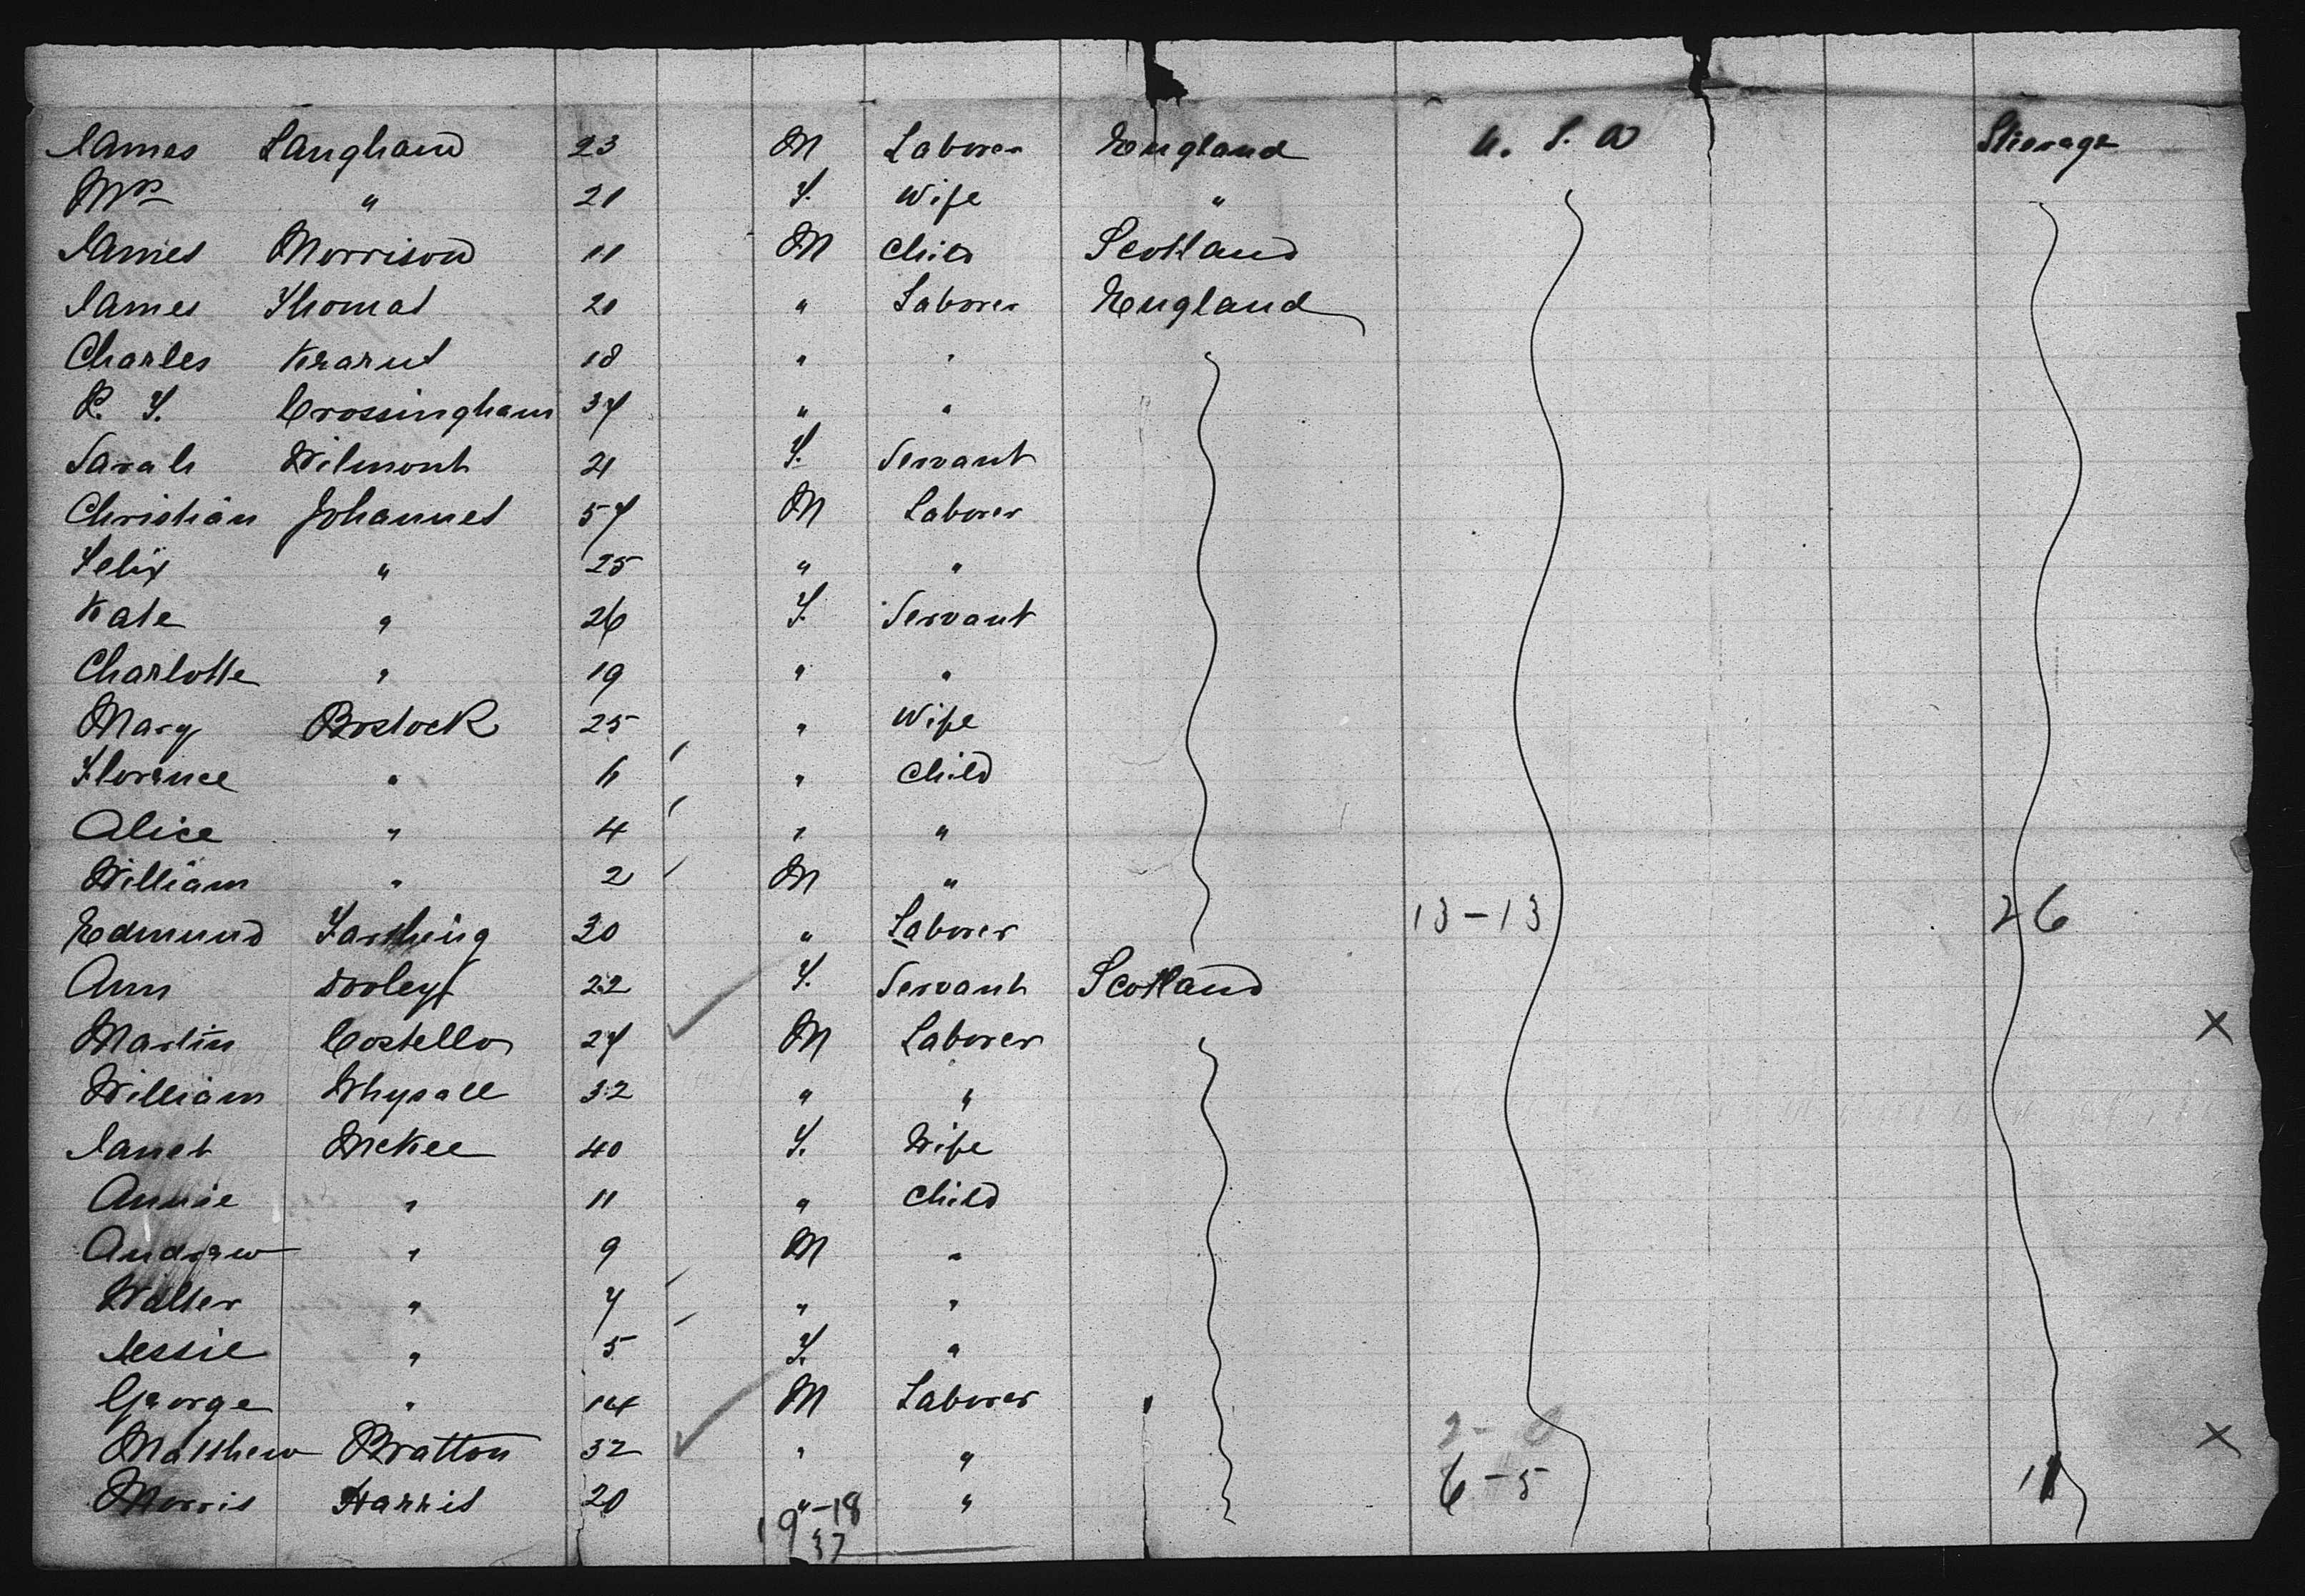 James Langham 23 M Laborer England U. S. A Steerage
Mrs " 21 F. Wife "
James Morrison 11 M Child Scotland
James Thomas 20 " Laborer England
Charles 18 " "
R. F. Crossingham 37 " "
Sarah Wilmont 21 F. Servant
Christian Johannes 57 M Laborer
Felix " 25 " "
Kate " 26 F. Servant
Charlotte " 19 " "
Mary Bostock 25 " Wife
Florence " 11 " Child
Alice " 4 " "
William " 2 M "
Edmund Farthing 30 " Laborer 13-13 26
Ann Dooley 22 F. Servant Scotland
Martin Costello 27 M Laborer X
William Whysall 32 " "
Janet McKee 40 F. Wife
Annie " 11 " Child
Andrew " 9 M "
Walter " 7 " "
Jessie " 5 F. "
George " 14 M Laborer
Matthew Bratton 32 " " X
Morris Harris 20 " " 6-5 11
19-18
37